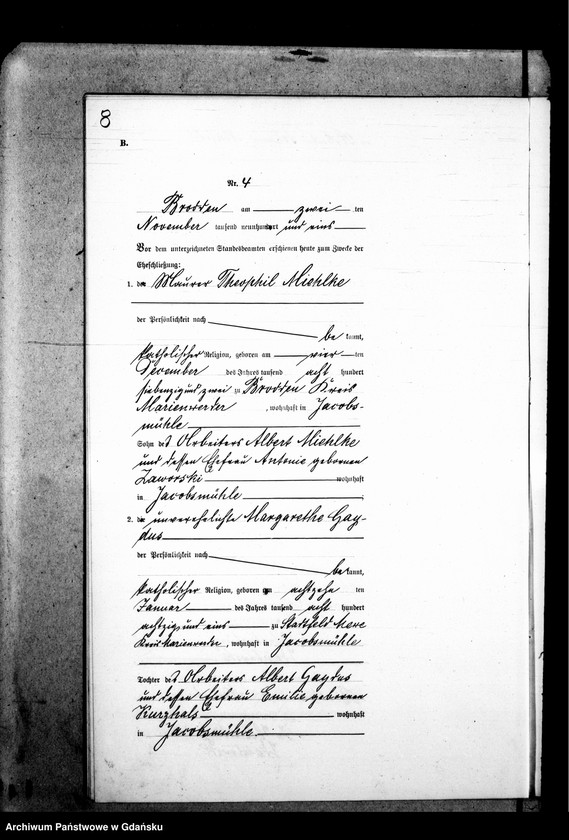 8
B.
Nr. 4
Brodden am zwei ten
November tausend neunhundert und eins
Vor dem unterzeichneten Standesbeamten erschienen heute zum Zwecke der
Eheschließung:
1. der Maurer Theophil Miehlke
der Persönlichkeit nach
be kannt,
katholischer Religion, geboren am vier ten
December des Jahres tausend acht hundert
siebenzig und zwei zu Brodden Kreis
Marienwerder, wohnhaft in Jacobs-
mühle
Sohn des Arbeiters Albert Miehlke
und dessen Ehefrau Antonie geborenen
Zaworski wohnhaft
in Jacobsmühle ;
2. die unverehelichte Margarethe Gay-
dus
der Persönlichkeit nach
be kannt,
katholischer Religion, geboren am achtzehn ten
Januar des Jahres tausend acht hundert
achtzig und eins zu Stadtfeld Mewe
Kreis Marienwerder, wohnhaft in Jacobsmühle
Tochter des Arbeiters Albert Gaydus
und dessen Ehefrau Emilie geborenen
Kurzhals wohnhaft
in Jacobsmühle
Archiwum Państwowe w Gdańsku